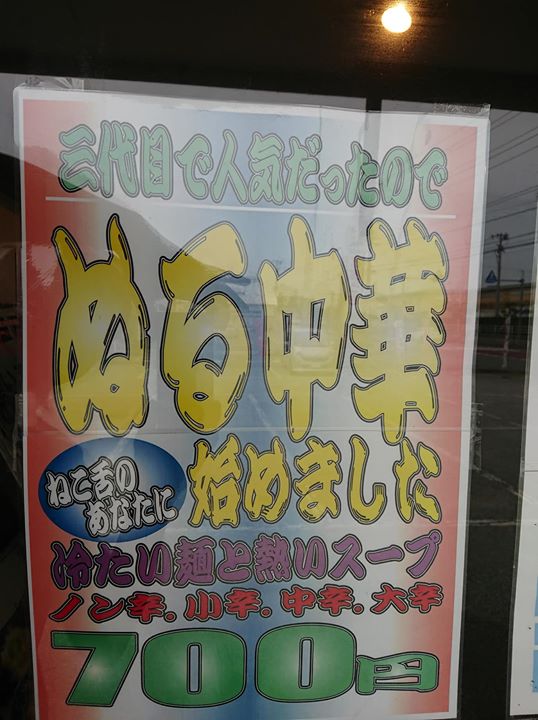 三代目で人気だったので
ぬる中華
ねこ舌の
あなたに
始めました
冷たい麺と熱いスープ
ノン辛.小辛.中辛.大辛
700円